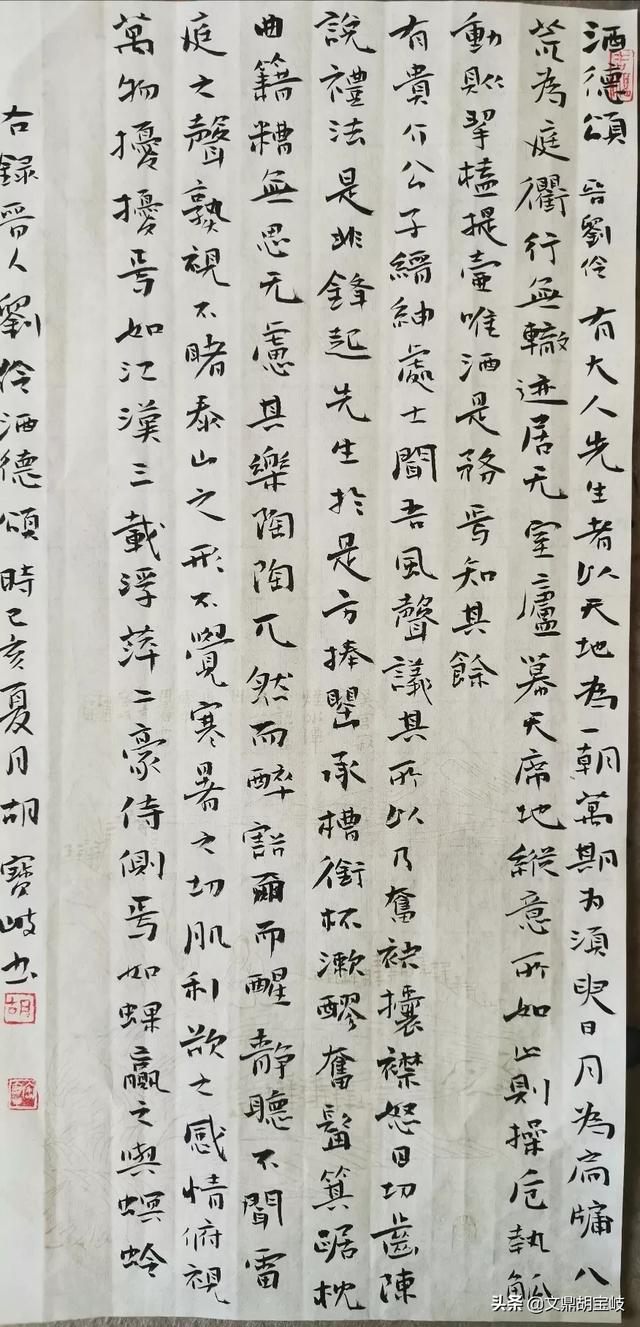 酒德頌 晉劉伶 有大人先生者以天地為一朝萬期为須臾日月為扃牖八
荒為庭衢行無轍迹居无室廬幕天席地縱意所如止則操卮執觚
動則挈榼提壺唯酒是務焉知其餘
有貴介公子縉紳處士聞吾風聲議其所以乃奮袂攘襟怒目切齒陳
說禮法是非鋒起先生於是方捧罌承槽銜杯漱醪奮髯箕踞枕
曲籍糟無思无慮其樂陶陶兀然而醉豁爾而醒靜聽不聞雷
庭之聲孰視不睹泰山之形不覺寒暑之切肌利欲之感情俯視
萬物擾擾焉如江漢三載浮萍二豪侍側焉如蜾蠃之與螟蛉
右錄晉人劉伶酒德頌時己亥夏月胡寶岐书
胡
头条 @文鼎胡宝岐